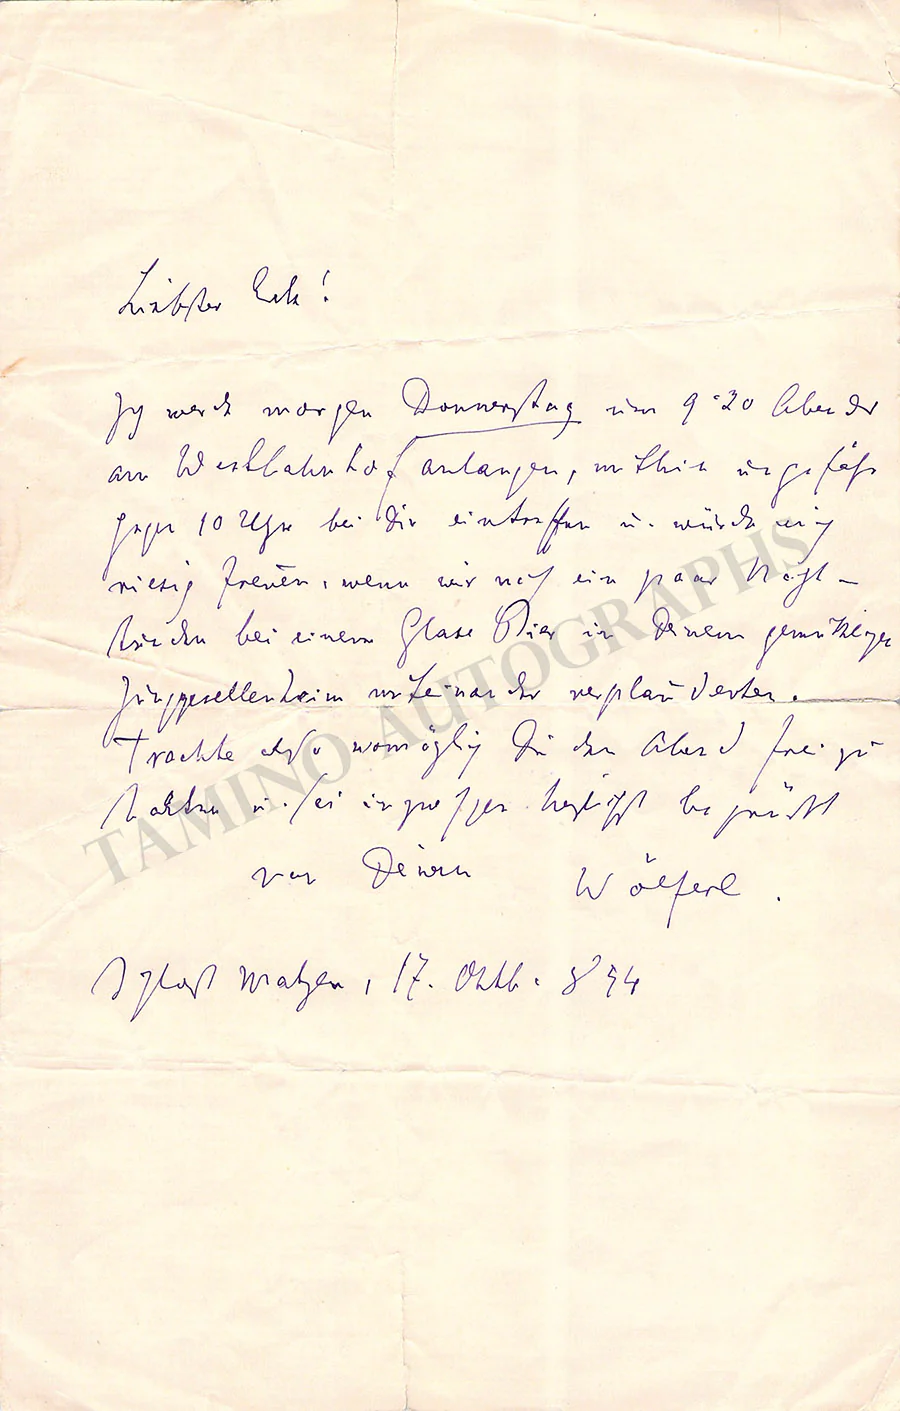 Liebster Eck!
Ich werde morgen Donnerstag um 9:20 Abends
am Westbahnhof anlangen, mithin ungefähr
gegen 10 Uhr bei Dir eintreffen u. würde mich
riesig freuen, wenn wir noch ein paar Nacht-
stunden bei einem Glase Bier in Deinem gemüthlichen
Junggesellenheim miteinander verplauderten.
Trachte also womöglich Dir den Abend frei zu
halten u. sei inzwischen herzlichst begrüßt
von Deinem Wölferl.
Schloss Matzen, 17. Oktb. 894
TAMINO AUTOGRAPHS